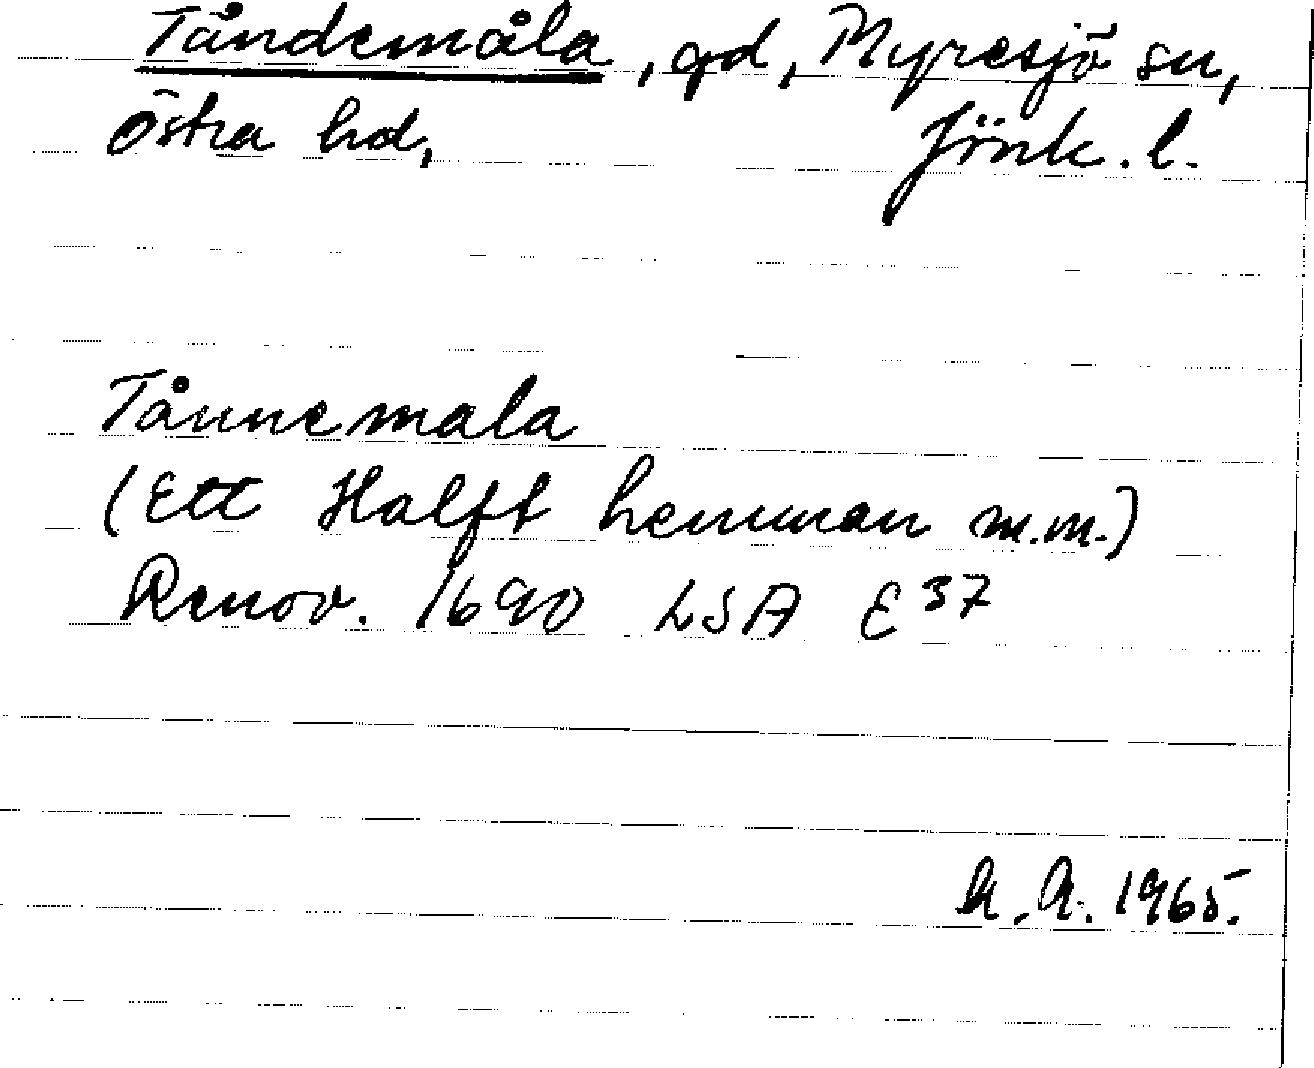 Tåndemåla, gd, Myresjö sn,
Östra hd, Jönk. l.
Tånnemala
(Ett Halft hemman m.m.)
Renov. 1690 LSA E37
A. 1965.